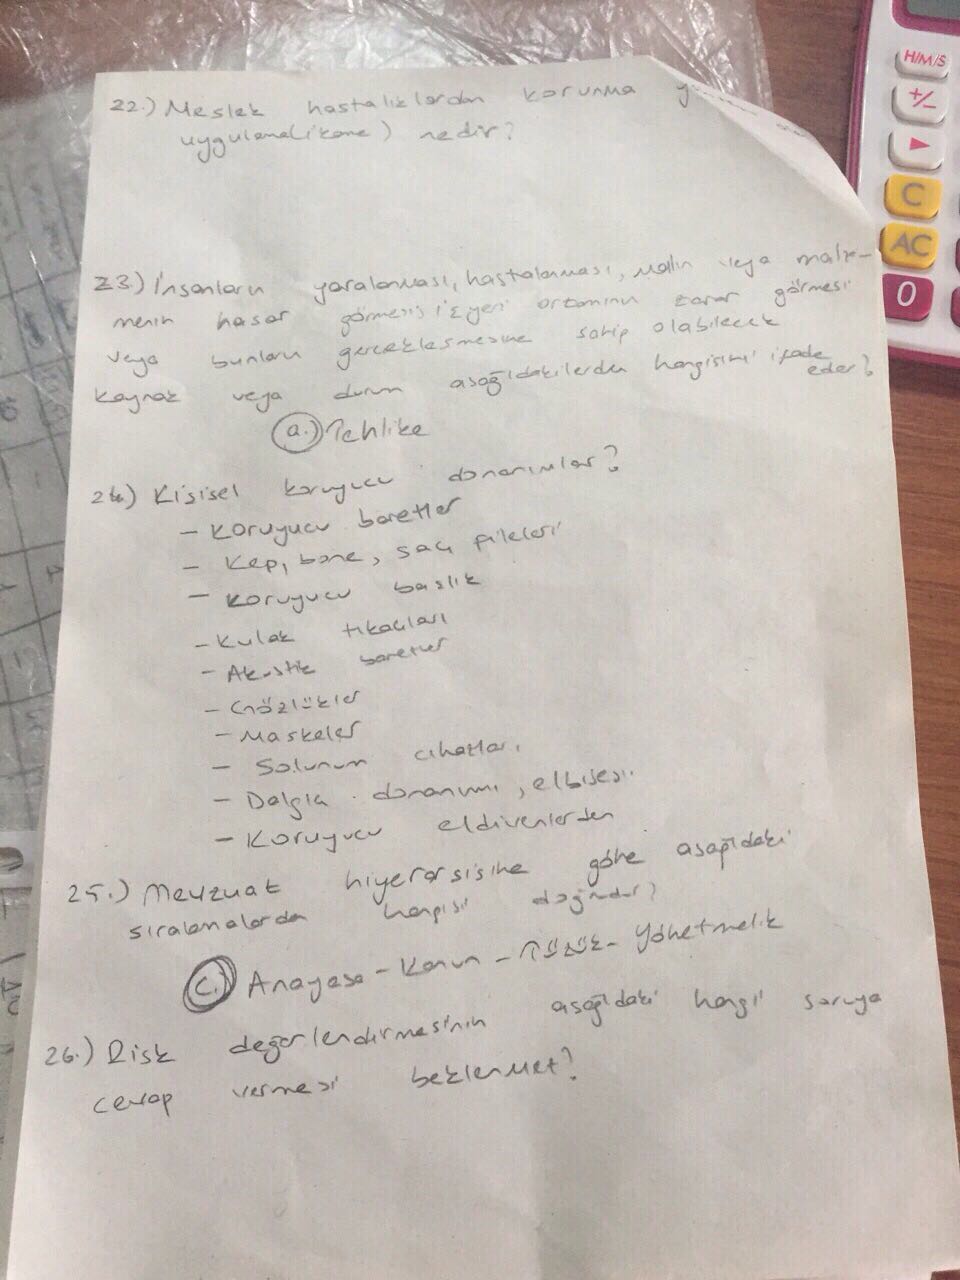 22.) Meslek hastalıklardan korunma
uygulama(ikame) nedir?
23.) İnsanların yaralanması, hastalanması, malın veya malze-
menin hasar görmesi, işyeri ortamının zarar görmesi
veya bunların gerçekleşmesine sahip olabilecek
kaynak veya durum aşağıdakilerden hangisini ifade
eder?
a.) Tehlike
24.) Kişisel koruyucu donanımlar?
- Koruyucu baretler
- Kep, bone, saç fileleri
- Koruyucu başlık
- Kulak tıkaçları
- Akustik baretler
- Gözlükler
- Maskeler
- Solunum cihazları
- Dalgıç donanımı, elbisesi
- Koruyucu eldivenlerden
25.) Mevzuat hiyerarşisine göre aşağıdaki
sıralamalardan hangisi doğrudur?
c.) Anayasa - Kanun - Tüzük - Yönetmelik
26.) Risk değerlendirmesinin aşağıdaki hangi soruya
cevap vermesi beklenmez?
H/M/S
+/-
C
AC
0